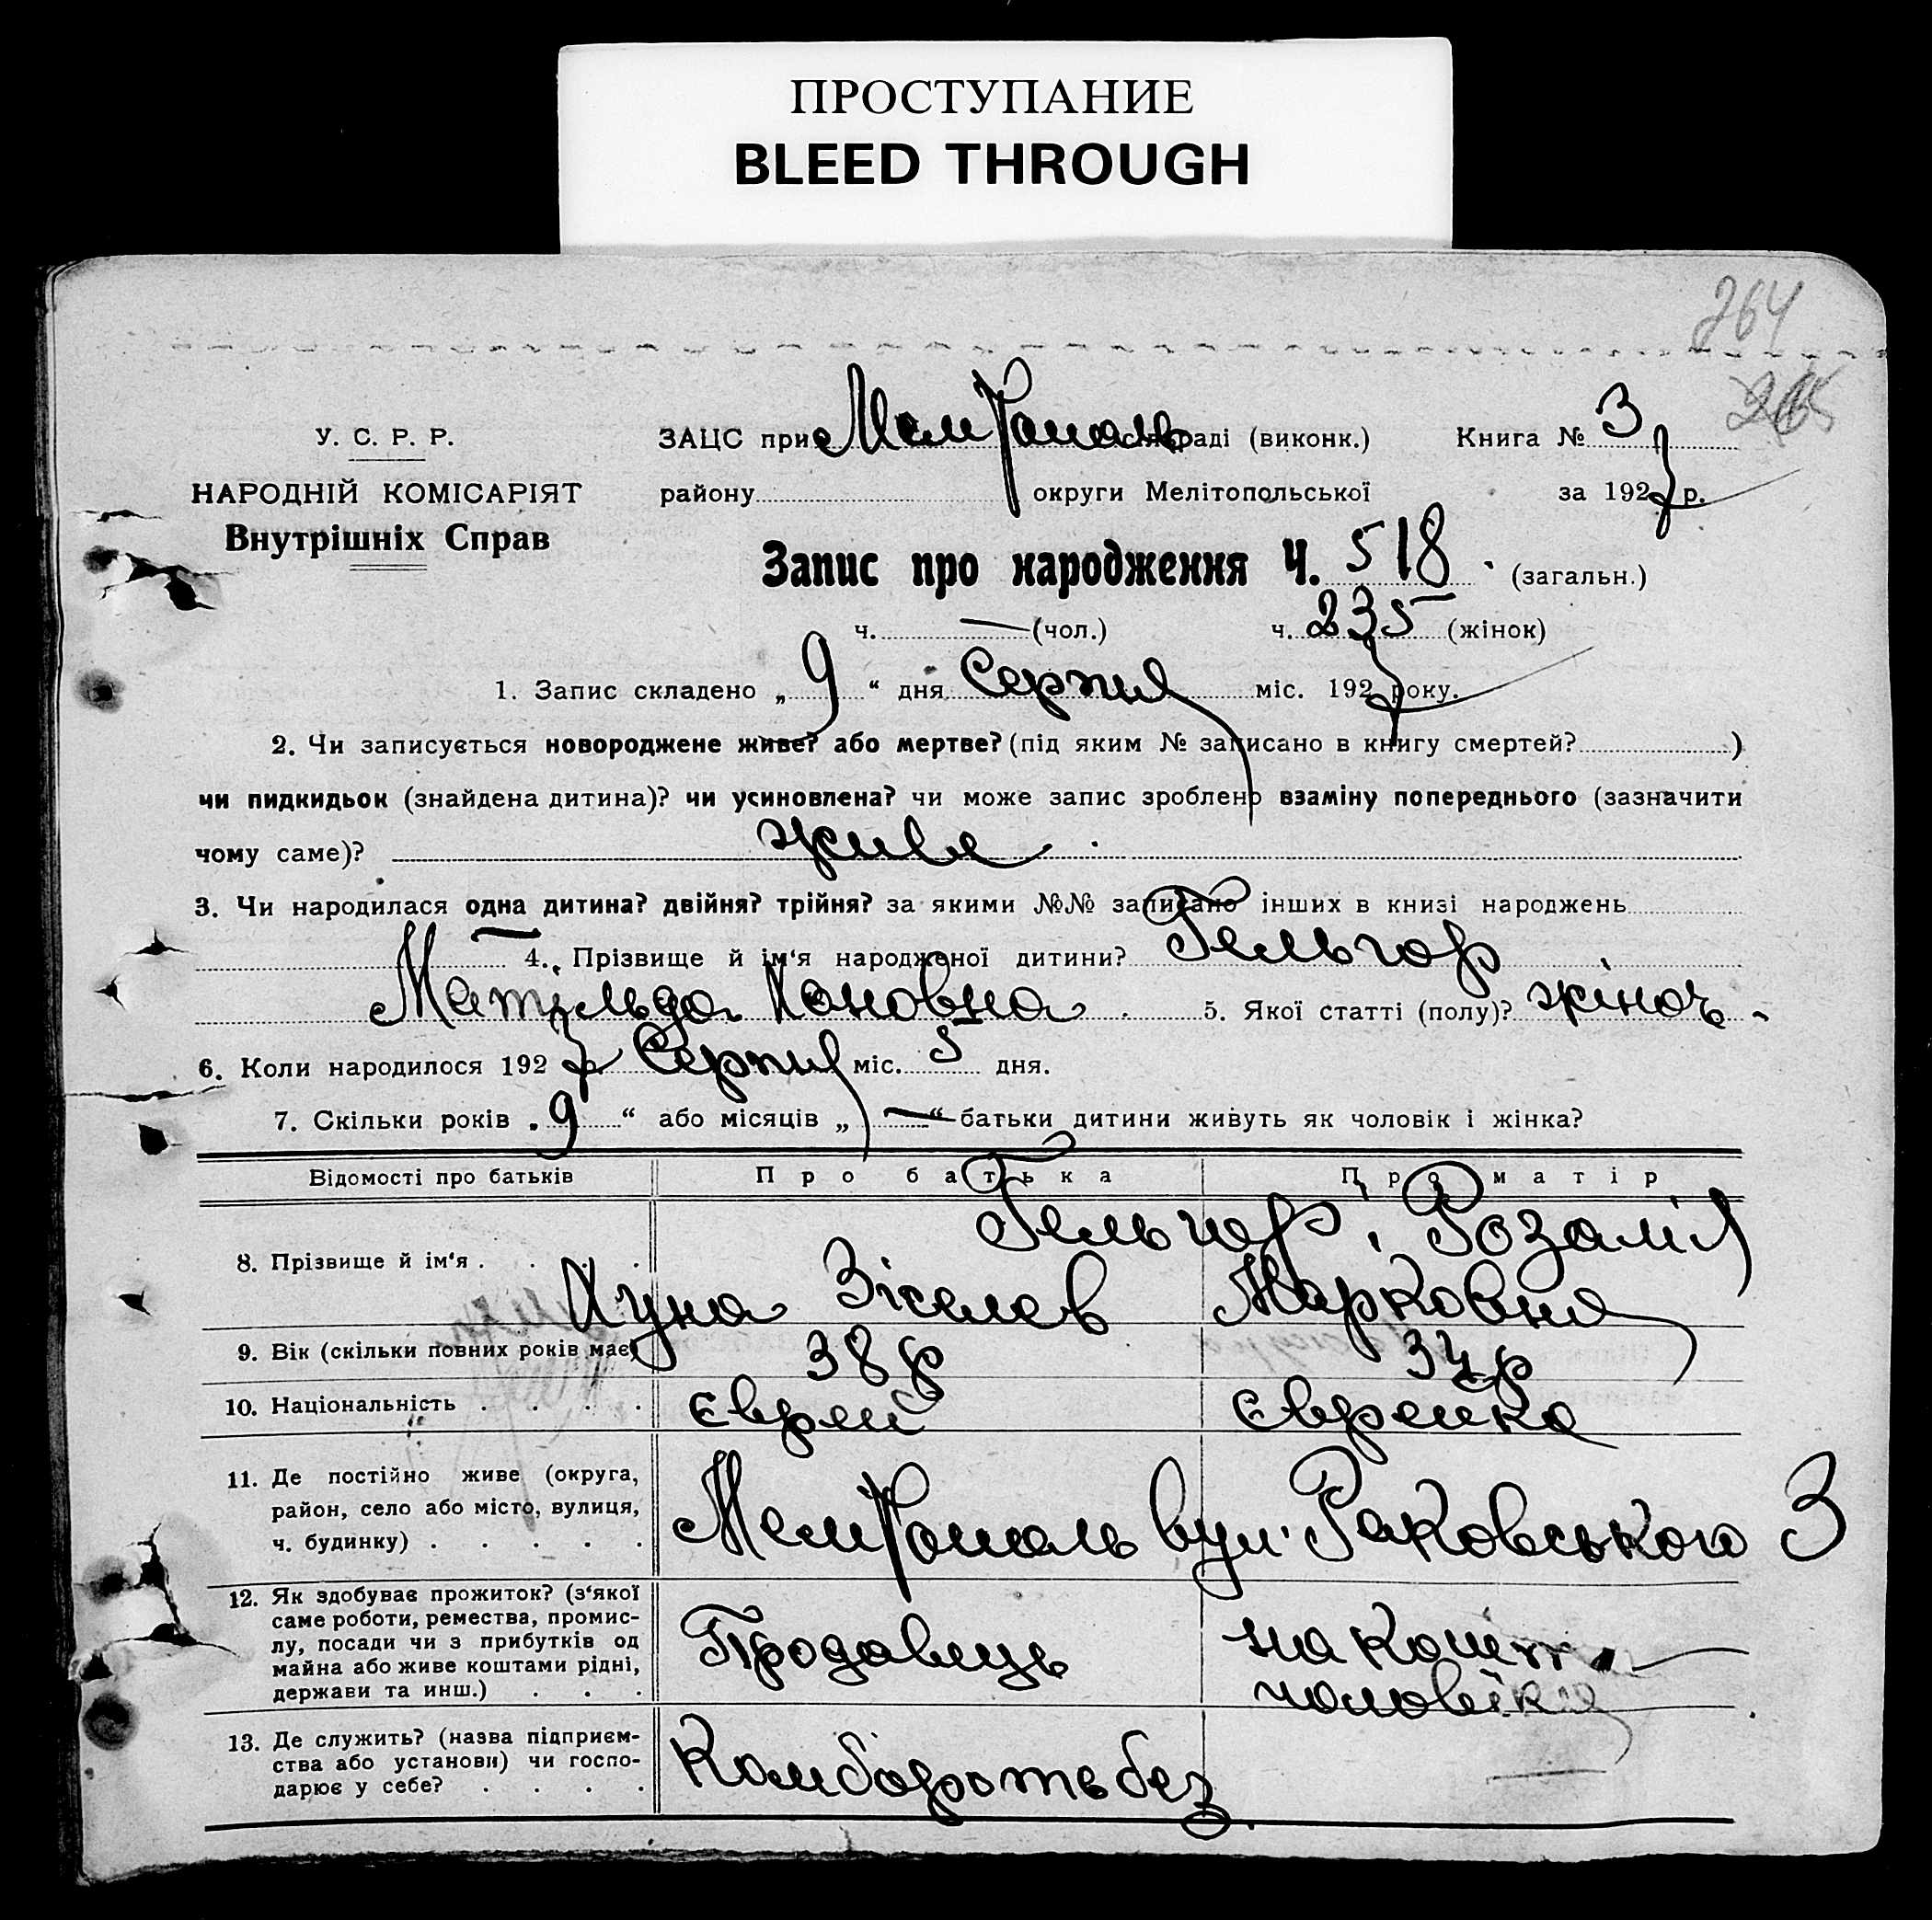 ПРОСТУПАНИЕ
BLEED THROUGH
264
У. С. Р. Р.
НАРОДНІЙ КОМІСАРІЯТ
Внутрішніх Справ
ЗАЦС при Мелітополь раді (виконк.) Книга № 3
району округи Мелітопольської за 1927 р.
Запис про народження Ч. 518 (загальн.)
ч. — (чол.) ч. 235 (жінок)
1. Запис складено „ 9 “ дня Серпня міс. 1927 року.
2. Чи записується новороджене живе? або мертве? (під яким № записано в книгу смертей? )
чи пидкидьок (знайдена дитина)? чи усиновлена? чи може запис зроблено взаміну попереднього (зазначити
чому саме)? живе
3. Чи народилася одна дитина? двійня? трійня? за якими №№ записано інших в книзі народжень
4. Прізвище й ім‘я народженої дитини? Гельгор
Матільда Хановна 5. Якої статті (полу)? жіноч.
6. Коли народилося 1927 р Серпня міс. 5 дня.
7. Скільки років „ 9 “ або місяців „ — “ батьки дитини живуть як чоловік і жінка?
Відомості про батьків Про батька Про матір
8. Прізвище й ім‘я . . . . Гельгор, Розалія
Хуна Зіселев Марковня
9. Вік (скільки повних років має) 38 р 34 р
10. Національність . . . . єврей єврейка
11. Де постійно живе (округа,
район, село або місто, вулиця,
ч. будинку) . . . . . Мелітополь вул. Раковського 3
12. Як здобуває прожиток? (з‘якої
саме роботи, ремества, промис-
лу, посади чи з прибутків од
майна або живе коштами рідні,
держави та инш.) . . . Продавець на кошти
чоловіка
13. Де служить? (назва підприєм-
ства або установи) чи госпо-
дарює у себе? . . . .